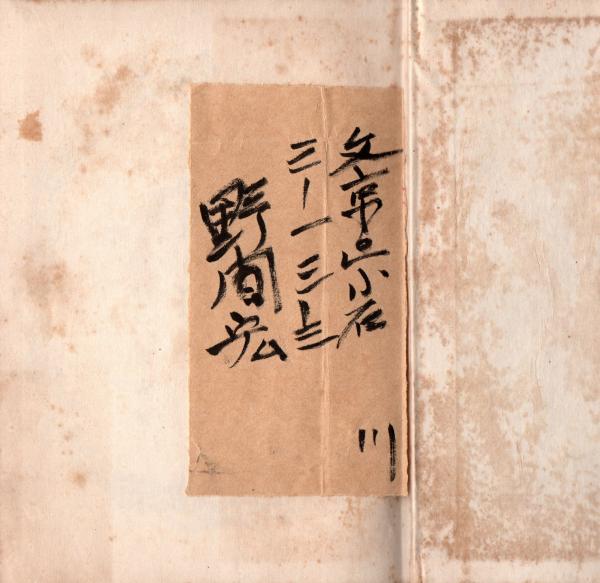 文京区小石川
三ー一三ー三
野間宏